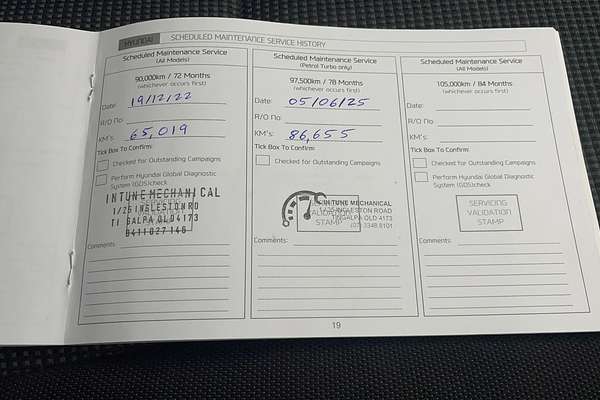 HYUNDAI SCHEDULED MAINTENANCE SERVICE HISTORY
Scheduled Maintenance Service
(All Models)
90,000km / 72 Months
(whichever occurs first)
Date: 19/12/22
R/O No
KM's: 65,019
Tick Box To Confirm:
Checked for Outstanding Campaigns
Perform Hyundai Global Diagnostic
System (GDS)check
INTUNE MECHANICAL
1/25 INGLESTON RD
TI GALPA QLD 4173
0411027146
Comments:
Scheduled Maintenance Service
(Petrol Turbo only)
97,500km / 78 Months
(whichever occurs first)
Date: 05/06/25
R/O No
KM's: 86,655
Tick Box To Confirm:
Checked for Outstanding Campaigns
INTUNE MECHANICAL
1/25 INGLESTON ROAD
VALIDATION
STAMP
QLD 4173
(07) 3348 8101
Comments:
Scheduled Maintenance Service
(All Models)
105,000km / 84 Months
(whichever occurs first)
Date:
R/O No
KM's:
Tick Box To Confirm:
Checked for Outstanding Campaigns
Perform Hyundai Global Diagnostic
System (GDS)check
SERVICING
VALIDATION
STAMP
Comments:
19